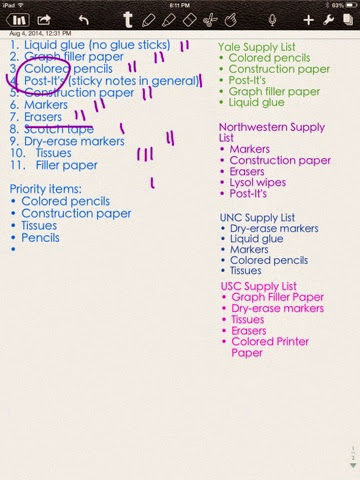 iPad
8:11 PM
63%
Aug 4, 2014, 12:31 PM
1. Liquid glue (no glue sticks)
2. Graph filler paper
3. Colored pencils
4. Post-It's (sticky notes in general)
5. Construction paper
6. Markers
7. Erasers
8. Scotch tape
9. Dry-erase markers
10. Tissues
11. Filler paper
Priority items:
• Colored pencils
• Construction paper
• Tissues
• Pencils
•
Yale Supply List
• Colored pencils
• Construction paper
• Post-It's
• Graph filler paper
• Liquid glue
Northwestern Supply
List
• Markers
• Construction paper
• Erasers
• Lysol wipes
• Post-It's
UNC Supply List
• Dry-erase markers
• Liquid glue
• Markers
• Colored pencils
• Tissues
USC Supply List
• Graph Filler Paper
• Dry-erase markers
• Tissues
• Erasers
• Colored Printer
Paper